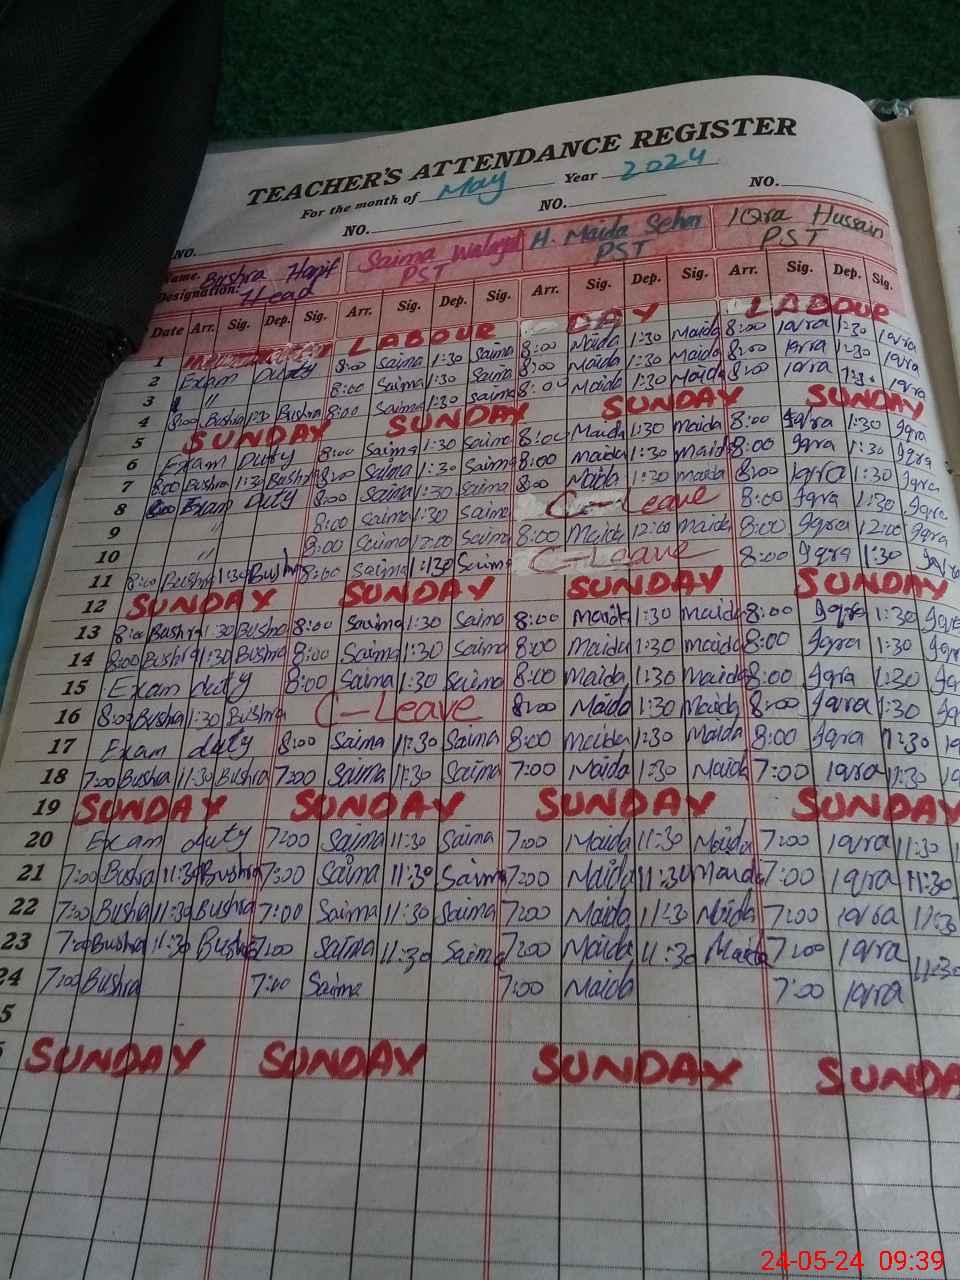 TEACHER'S ATTENDANCE REGISTER
For the month of May Year 2024
NO. NO. NO. NO.
Name. Bushra Hanif Saima H. Maida Sehar Iqra Hussain
Designation. Head PST PST PST
Date Arr. Sig. Dep. Sig. Arr. Sig. Dep. Sig. Arr. Sig. Dep. Sig. Arr. Sig. Dep. Sig.
1 LABOUR DAY LABOUR
2 Exam Duty 8:00 Saima 1:30 Saima 8:00 Maida 1:30 Maida 8:00 Iqra 1:30 Iqra
3 " 8:00 Saima 1:30 Saima 8:00 Maida 1:30 Maida 8:00 Iqra 1:30 Iqra
4 8:00 Bushra 1:30 Bushra 8:00 Saima 1:30 Saima 8:00 Maida 1:30 Maida 8:00 Iqra 1:30 Iqra
5 SUNDAY SUNDAY SUNDAY SUNDAY
6 Exam Duty 8:00 Saima 1:30 Saima 8:00 Maida 1:30 Maida 8:00 Iqra 1:30 Iqra
7 8:00 Bushra 1:30 Bushra 8:00 Saima 1:30 Saima 8:00 Maida 1:30 Maida 8:00 Iqra 1:30 Iqra
8 Exam Duty 8:00 Saima 1:30 Saima 8:00 Maida 1:30 Maida 8:00 Iqra 1:30 Iqra
9 " 8:00 Saima 1:30 Saima C-Leave 8:00 Iqra 1:30 Iqra
10 " 8:00 Saima 12:00 Saima 8:00 Maida 12:00 Maida 8:00 Iqra 12:00 Iqra
11 8:00 Bushra 1:30 Bushra 8:00 Saima 1:30 Saima C-Leave 8:00 Iqra 1:30 Iqra
12 SUNDAY SUNDAY SUNDAY SUNDAY
13 8:00 Bushra 1:30 Bushra 8:00 Saima 1:30 Saima 8:00 Maida 1:30 Maida 8:00 Iqra 1:30 Iqra
14 8:00 Bushra 1:30 Bushra 8:00 Saima 1:30 Saima 8:00 Maida 1:30 Maida 8:00 Iqra 1:30
15 Exam duty 8:00 Saima 1:30 Saima 8:00 Maida 1:30 Maida 8:00 Iqra 1:30
16 8:00 Bushra 1:30 Bushra C-Leave 8:00 Maida 1:30 Maida 8:00 Iqra 1:30
17 Exam duty 8:00 Saima 11:30 Saima 8:00 Maida 1:30 Maida 8:00 Iqra 11:30
18 7:00 Bushra 11:30 Bushra 7:00 Saima 11:30 Saima 7:00 Maida 1:30 Maida 7:00 Iqra 11:30
19 SUNDAY SUNDAY SUNDAY SUNDAY
20 Exam duty 7:00 Saima 11:30 Saima 7:00 Maida 11:30 Maida 7:00 Iqra 11:30
21 7:00 Bushra 11:30 Bushra 7:00 Saima 11:30 Saima 7:00 Maida 11:30 Maida 7:00 Iqra 11:30
22 7:00 Bushra 11:30 Bushra 7:00 Saima 11:30 Saima 7:00 Maida 11:30 Maida 7:00 Iqra 11:30
23 7:00 Bushra 11:30 Bushra 7:00 Saima 11:30 Saima 7:00 Maida 11:30 Maida 7:00 Iqra 11:30
24 7:00 Bushra 7:00 Saima 7:00 Maida 7:00 Iqra
5
SUNDAY SUNDAY SUNDAY SUNDA
24-05-24 09:39